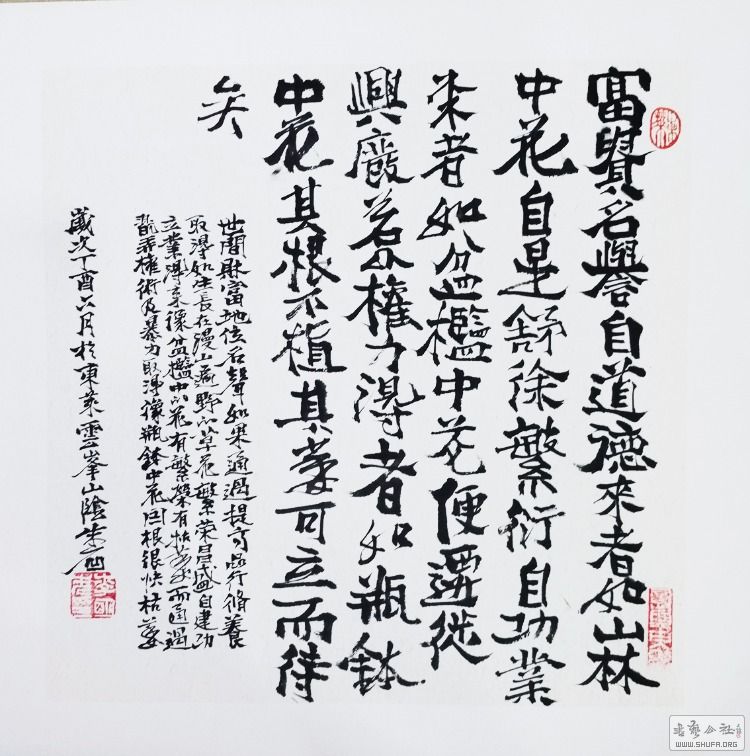 富貴名譽自道德來者如山林
中花自是舒徐繁衍自功業
來者如盆檻中花便遷徙
興廢若以權力得者如瓶鉢
中花其根不植其萎可立而待
矣
世間財富地位名聲如果通過提高品行修養
取得如生長在漫山遍野的草花繁荣昌盛自建功
立業得來像盆檻中的花有繁榮有枯萎而通過
玩弄權術及暴力取得像瓶鉢中花根很快枯萎
歲次丁酉六月於東萊雲峯山陰
書藝公社
WWW.SHUFA.ORG